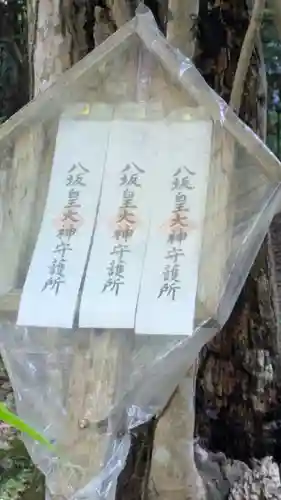 八坂皇大神守護所
八坂皇大神守護所
八坂皇大神守護所